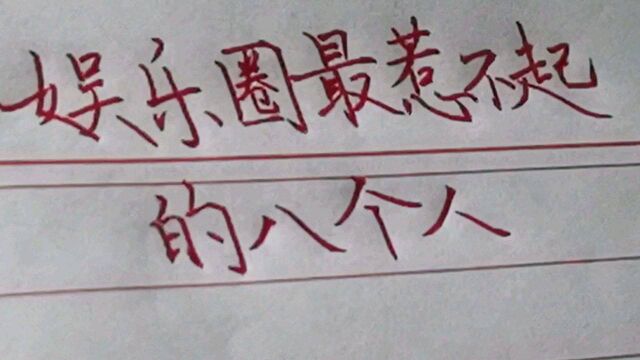 娱乐圈最惹不起
的八个人